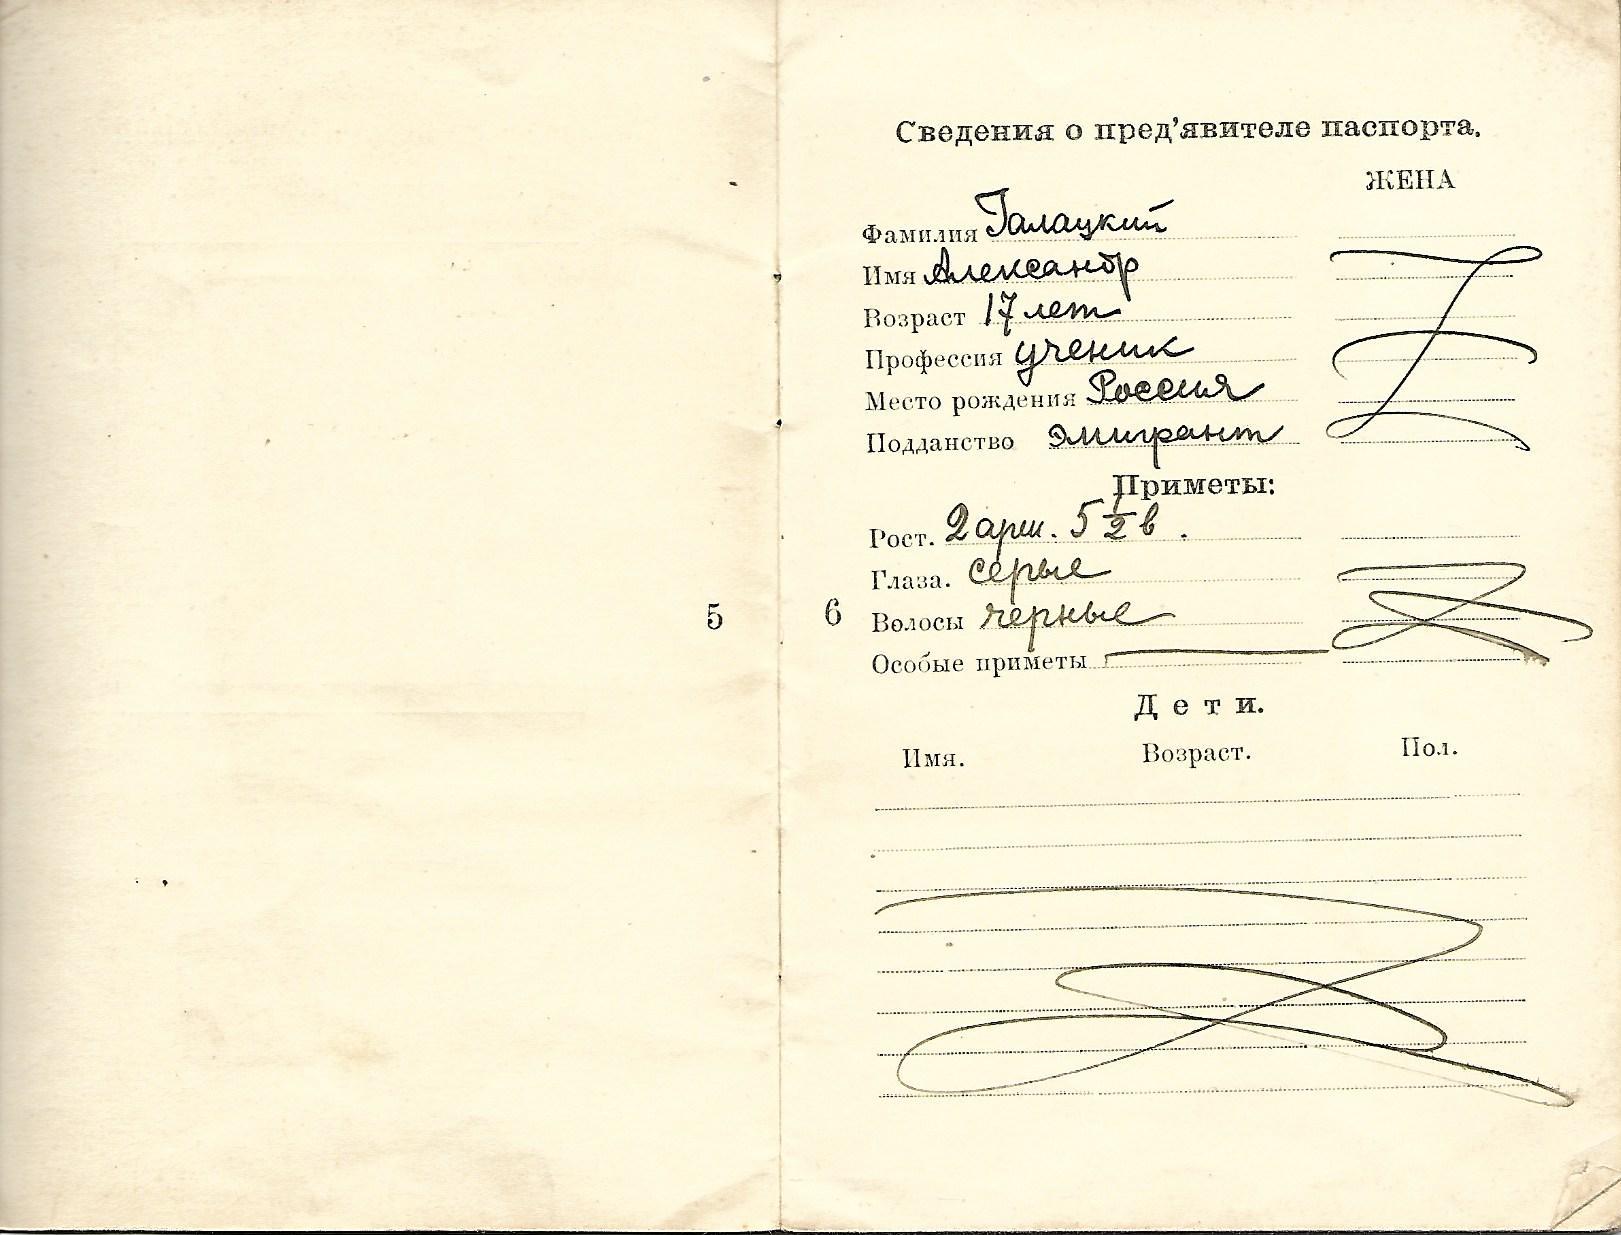 5
Сведения о пред'явителе паспорта.
ЖЕНА
Фамилия Галацкий
Имя Александр
Возраст 17 лет
Профессия ученик
Место рождения Россия
Подданство эмигрант
Приметы:
Рост. 2 арш. 5 1/2 в.
Глаза. серые
6
Волосы черные
Особые приметы
Дети.
Имя. Возраст. Пол.